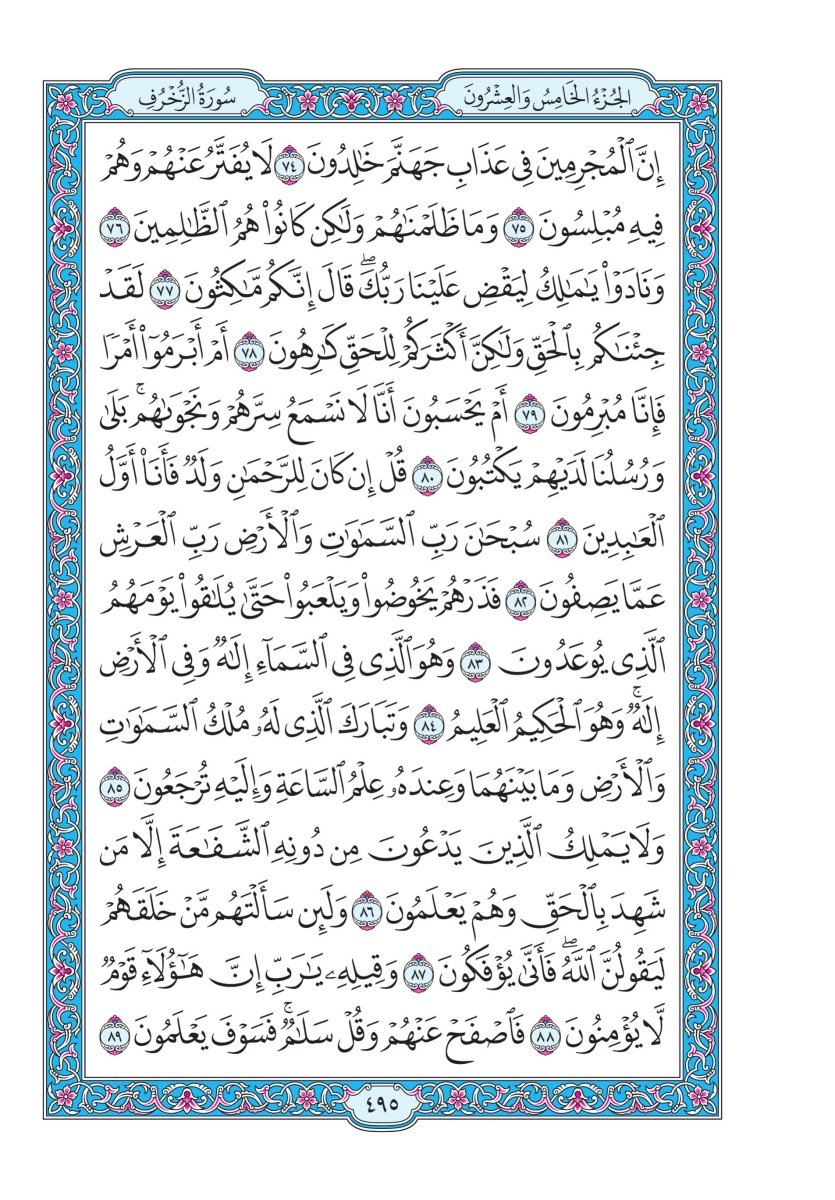 الجُزْءُ الخَامِسُ وَالعِشْرُونَ
سُورَةُ الزُّخْرُفِ
إِنَّ ٱلْمُجْرِمِينَ فِى عَذَابِ جَهَنَّمَ خَٰلِدُونَ ٧٤ لَا يُفَتَّرُ عَنْهُمْ وَهُمْ
فِيهِ مُبْلِسُونَ ٧٥ وَمَا ظَلَمْنَٰهُمْ وَلَٰكِن كَانُوا۟ هُمُ ٱلظَّٰلِمِينَ ٧٦
وَنَادَوْا۟ يَٰمَٰلِكُ لِيَقْضِ عَلَيْنَا رَبُّكَۖ قَالَ إِنَّكُم مَّٰكِثُونَ ٧٧ لَقَدْ
جِئْنَٰكُم بِٱلْحَقِّ وَلَٰكِنَّ أَكْثَرَكُمْ لِلْحَقِّ كَٰرِهُونَ ٧٨ أَمْ أَبْرَمُوٓا۟ أَمْرًا
فَإِنَّا مُبْرِمُونَ ٧٩ أَمْ يَحْسَبُونَ أَنَّا لَا نَسْمَعُ سِرَّهُمْ وَنَجْوَىٰهُمۚ بَلَىٰ
وَرُسُلُنَا لَدَيْهِمْ يَكْتُبُونَ ٨٠ قُلْ إِن كَانَ لِلرَّحْمَٰنِ وَلَدٌ فَأَنَا۠ أَوَّلُ
ٱلْعَٰبِدِينَ ٨١ سُبْحَٰنَ رَبِّ ٱلسَّمَٰوَٰتِ وَٱلْأَرْضِ رَبِّ ٱلْعَرْشِ
عَمَّا يَصِفُونَ ٨٢ فَذَرْهُمْ يَخُوضُوا۟ وَيَلْعَبُوا۟ حَتَّىٰ يُلَٰقُوا۟ يَوْمَهُمُ
ٱلَّذِى يُوعَدُونَ ٨٣ وَهُوَ ٱلَّذِى فِى ٱلسَّمَآءِ إِلَٰهٌ وَفِى ٱلْأَرْضِ
إِلَٰهٌۚ وَهُوَ ٱلْحَكِيمُ ٱلْعَلِيمُ ٨٤ وَتَبَارَكَ ٱلَّذِى لَهُۥ مُلْكُ ٱلسَّمَٰوَٰتِ
وَٱلْأَرْضِ وَمَا بَيْنَهُمَا وَعِندَهُۥ عِلْمُ ٱلسَّاعَةِ وَإِلَيْهِ تُرْجَعُونَ ٨٥
وَلَا يَمْلِكُ ٱلَّذِينَ يَدْعُونَ مِن دُونِهِ ٱلشَّفَٰعَةَ إِلَّا مَن
شَهِدَ بِٱلْحَقِّ وَهُمْ يَعْلَمُونَ ٨٦ وَلَئِن سَأَلْتَهُم مَّنْ خَلَقَهُمْ
لَيَقُولُنَّ ٱللَّهُۖ فَأَنَّىٰ يُؤْفَكُونَ ٨٧ وَقِيلِهِۦ يَٰرَبِّ إِنَّ هَٰٓؤُلَآءِ قَوْمٌ
لَّا يُؤْمِنُونَ ٨٨ فَٱصْفَحْ عَنْهُمْ وَقُلْ سَلَٰمٌۚ فَسَوْفَ يَعْلَمُونَ ٨٩
٤٩٥